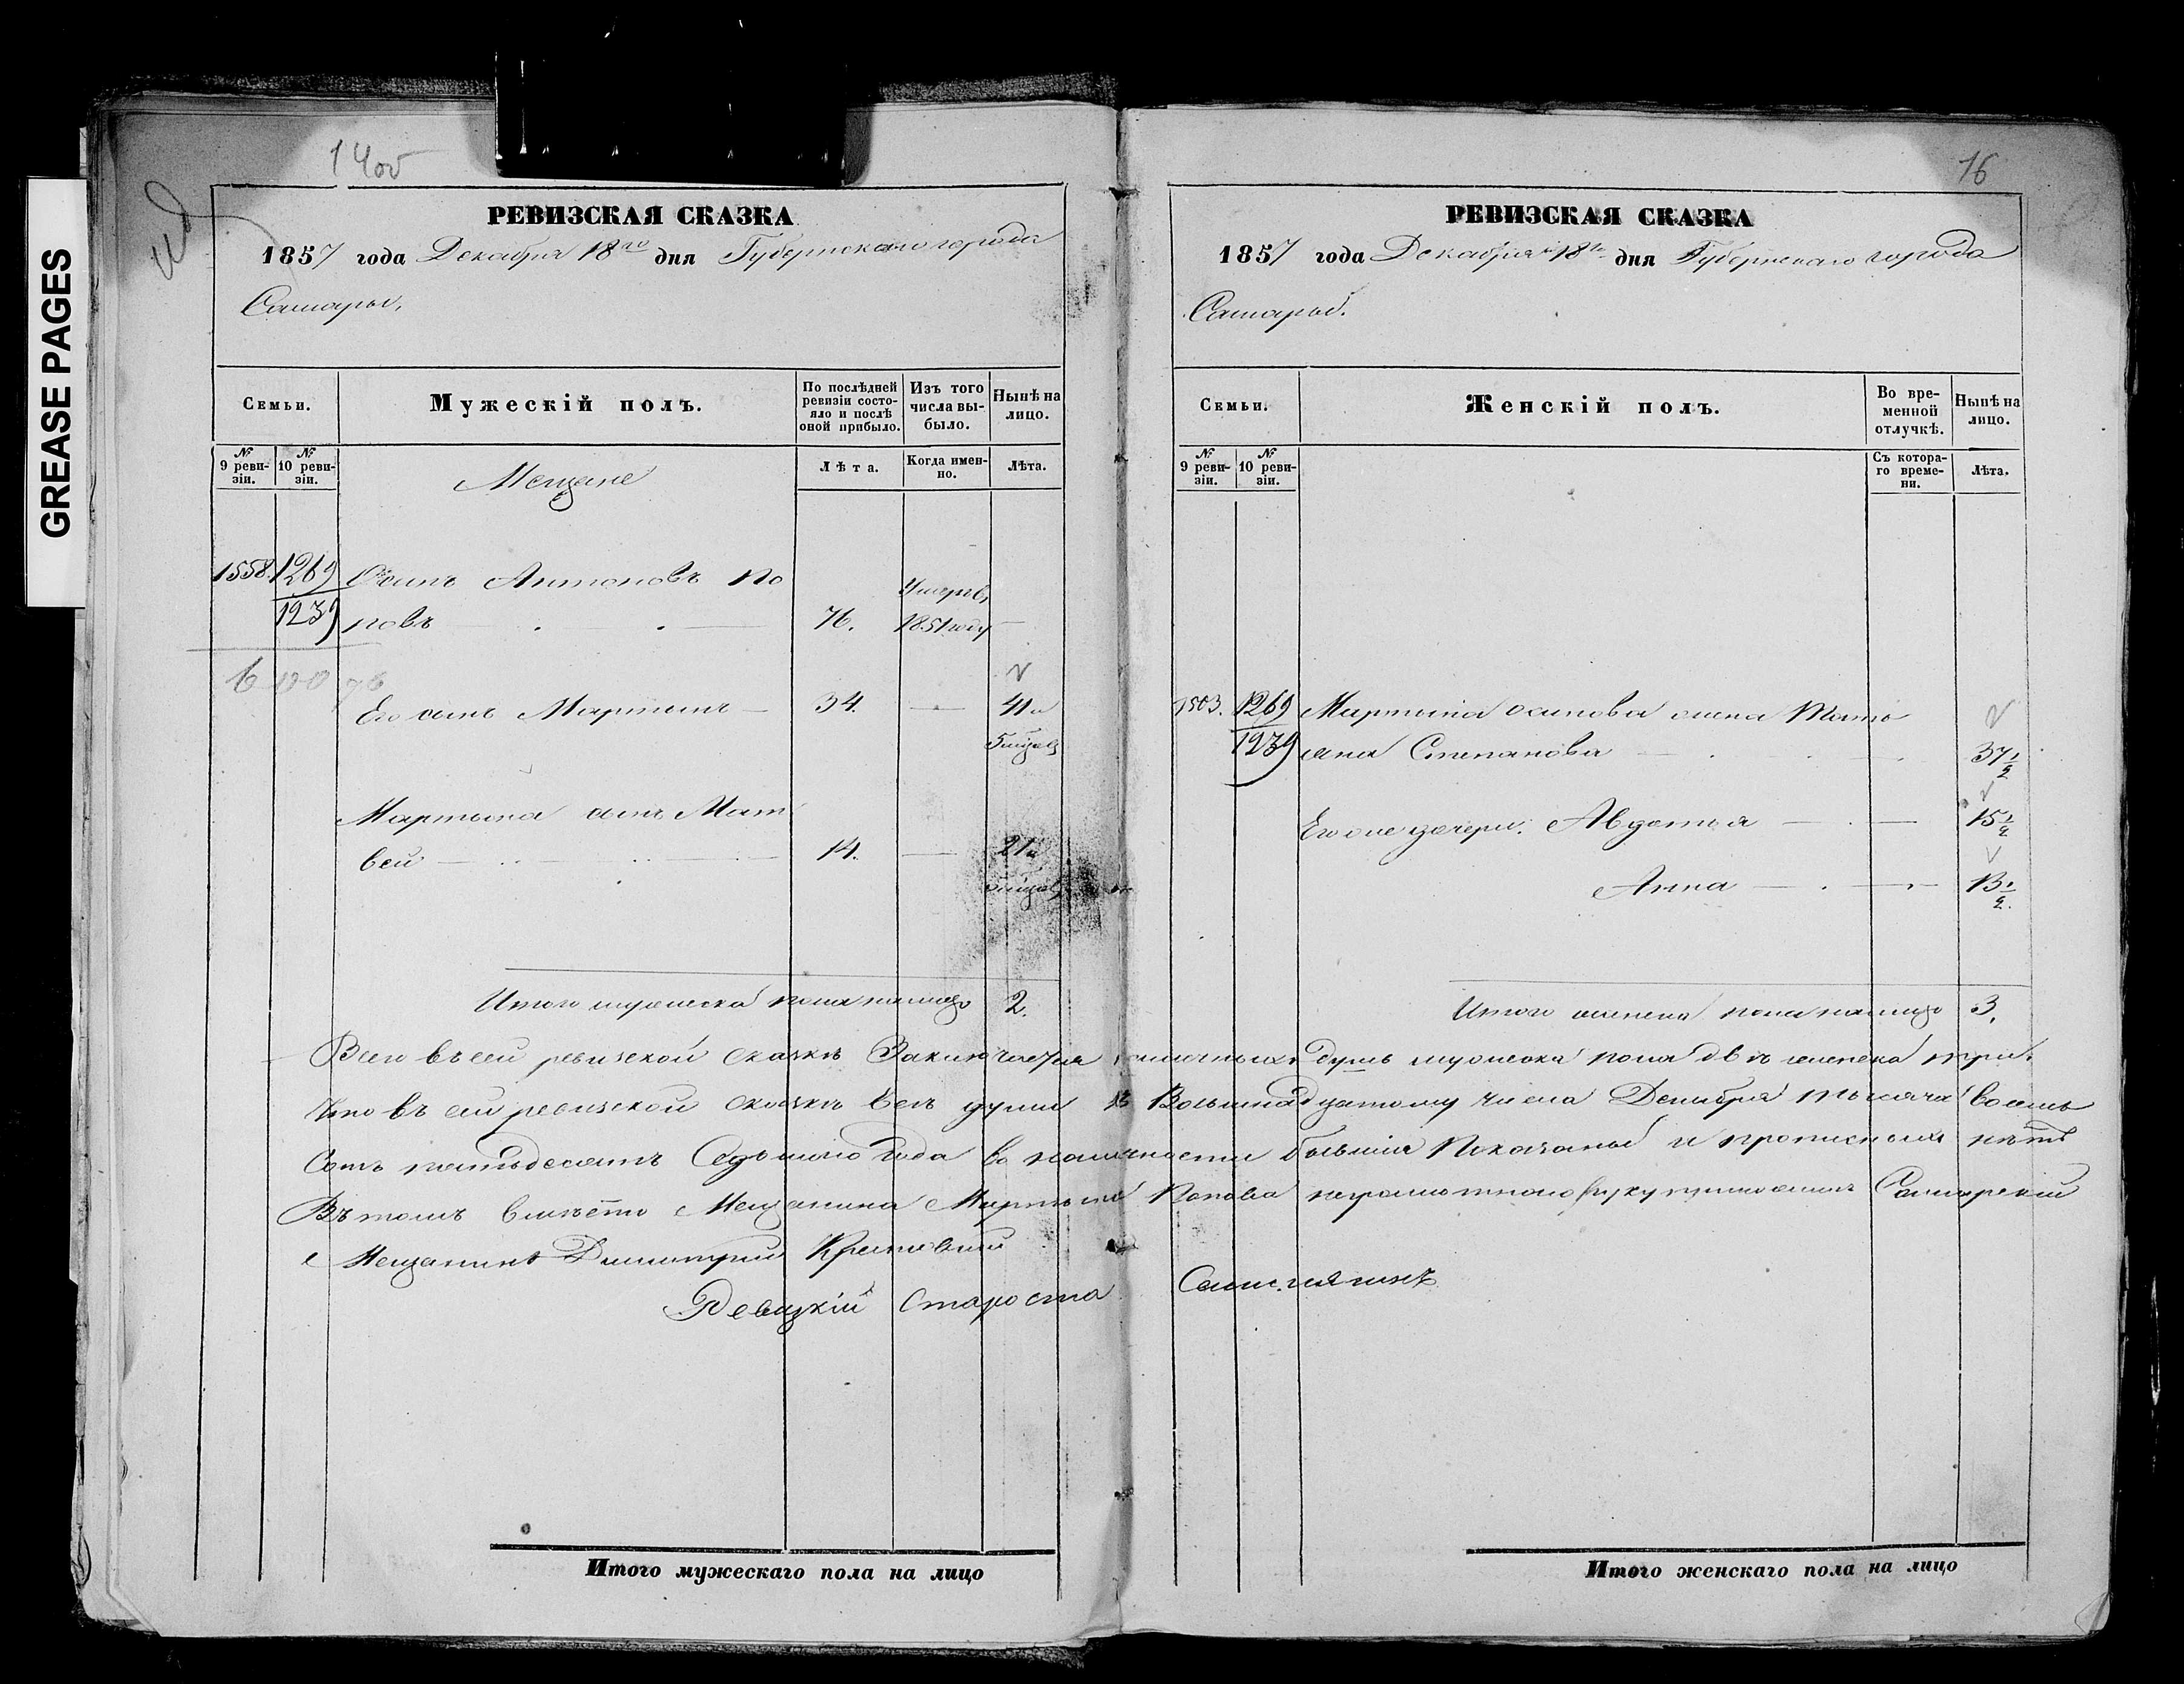 GREASE PAGES
14об
РЕВИЗСКАЯ СКАЗКА
1857 года Декабря 18го дня Губернскаго города
Самары.
Семьи.
Мужескій полъ.
По послѣдней ревизіи состояло и послѣ оной прибыло.
Изъ того числа выбыло.
Нынѣ на лицо.
№ 9 ревизіи.
№ 10 ревизіи.
Мещане
Лѣта.
Когда именно.
Лѣта.
1558. 1269 Осипъ Антоновъ По
Умеръ
1239 повъ 76. 1851 году
Его сынъ Мартынъ 34. 41 и
5 мѣцов
Мартына сынъ Мат
вей 14. 21 и
5 мѣцов
Итого мужеска пола налицо 2.
16
РЕВИЗСКАЯ СКАЗКА
1857 года Декабря 18го дня Губернскаго города
Самары.
Семьи.
Женскій полъ.
Во временной отлучкѣ.
Нынѣ на лицо.
№ 9 ревизіи.
№ 10 ревизіи.
Съ котораго времени.
Лѣта.
1503. 1269 Мартына Осипова жена Тать
1239 яна Степанова 37 1/2
Его же дочери: Авдотья 15 1/2
Анна 13 1/2
Итого женска пола налицо 3.
Всего въ сей ревизской сказкѣ Заключается наличныхъ душъ мужеска пола двѣ женска три.
Что въ сей ревизской сказкѣ всѣ души къ Восьмнадцатому числа Декабря тысяча восемь
Сотъ пятьдесятъ Седьмого Года въ наличности бывшія Показаны и прописныхъ нѣтъ
Въ томъ вмѣсто Мещанина Мартына Попова неграмотного руку приложилъ Самарскій
Мещанинъ Димитрий
Ревизкій Староста
Итого мужескаго пола на лицо
Итого женскаго пола на лицо